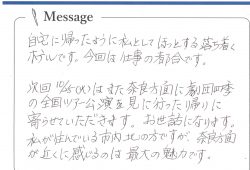 Message
自宅に帰ったように私としてはほっとする落ち着く
ホテルです。今回は仕事の都合です。
次回10/5(火)はまた奈良方面に劇団四季
の全国ツアー公演を見に行った帰りに
寄らせていただきます。お世話になります。
私が住んでいる市内北の方ですが、奈良方面
が近くに感じるのは最大の魅力です。